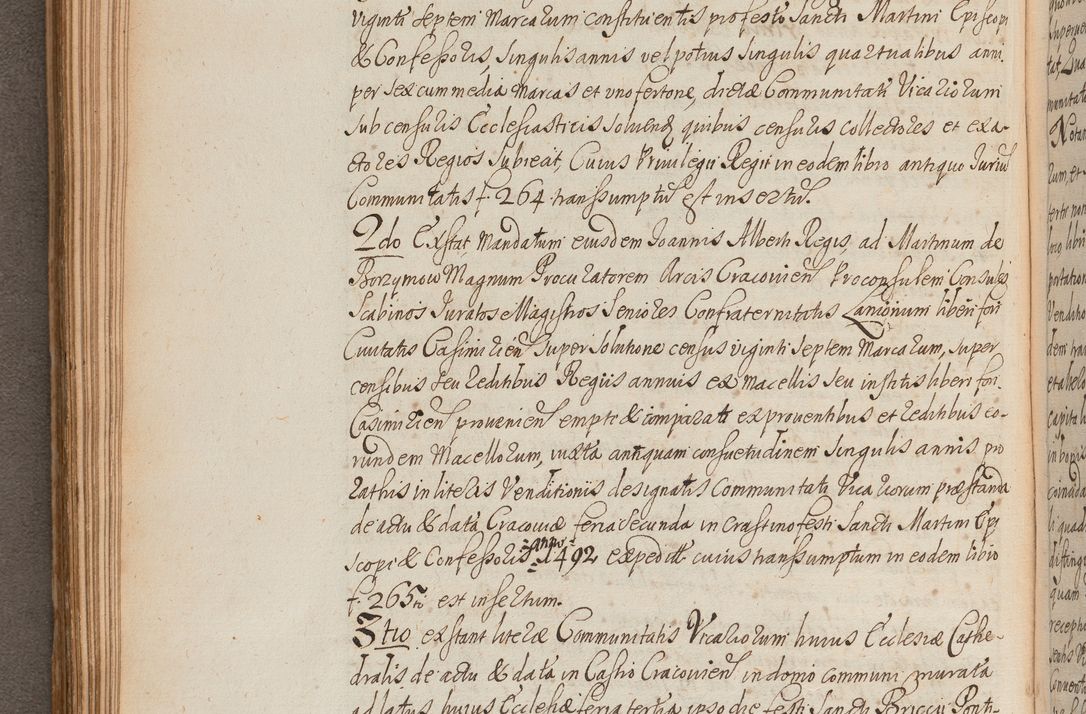 viginti septem Marcarum constituentis pro festo Sancti Martini Episcopi
& Confessoris, singulis annis vel potius singulis quartualibus anni
per sex cum media Marcas et uno fertone, dictæ Communitati Vicariorum
sub censuris Ecclesiasticis solvend quibus censuris collectores et exa-
ctores Regios subieat, Cuius Privilegii Regii in eodem libro antiquo Iuriũ
Communitatis f. 264 transsumptũ est insertũ.
2do Exstat Mandatum eiusdem Ioannis Alberti Regis, ad Martinum de
Borzymow Magnum Procuratorem Arcis Cracovien Proconsulem Consules
Scabinos Iuratos Magistros Seniores Confraternitatis Lanionum liberi fori
Civitatis Casimirien super solutione census viginti septem Marcarum, super
censibus seu reditibus Regiis annuis ex Macellis seu institis liberi fori
Casimirien provenien empti & comparati ex proventibus et reditibus eo-
rundem Macellorum, iuxta antiquam consuetudinem singulis annis pro
rathis in literis Venditionis designatis Communitati Vicariorum præstanda
de actu & data Cracoviæ feria secunda in crastino festi Sancti Martini Epi
scopi & Confessoris anno 1492 expedit cuius transsumptum in eodem libro
f. 265 est insertum.
3tio exstant literæ Communitatis Vicariorum huius Ecclesiæ Cathe-
dralis de actu & data in Castro Cracovien in domo communi murata
ad latus huius Ecclesiæ feria tertia ipso die festi Sancti Briccii Ponti-